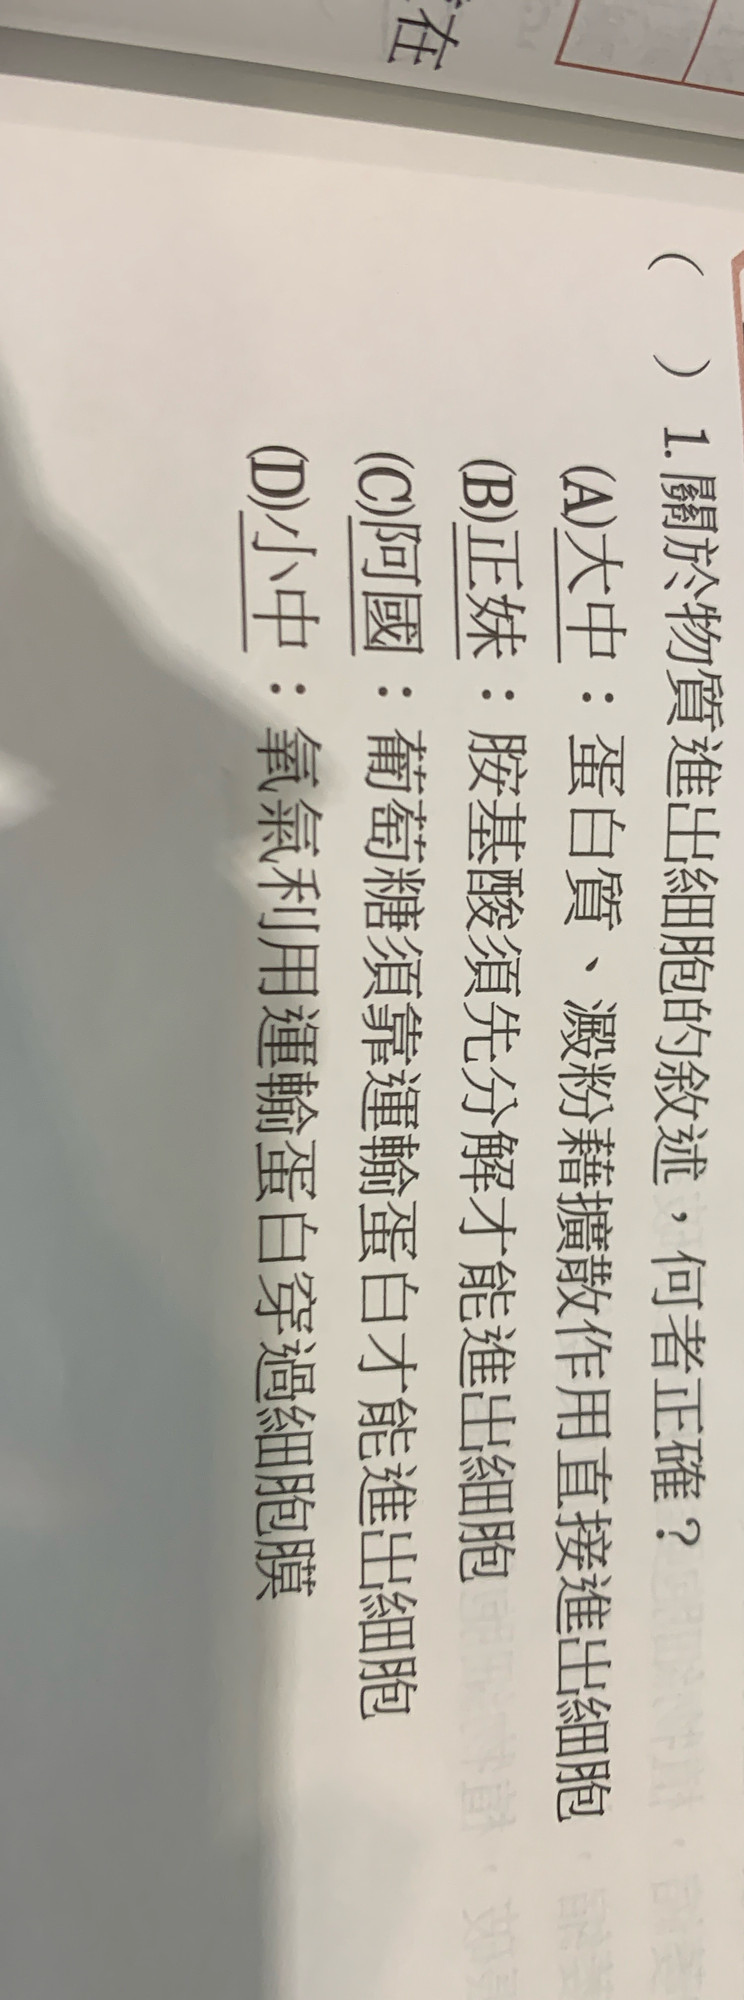 在
（　）1.關於物質進出細胞的敘述，何者正確？
(A)大中：蛋白質、澱粉藉擴散作用直接進出細胞
(B)正妹：胺基酸須先分解才能進出細胞
(C)阿國：葡萄糖須靠運輸蛋白才能進出細胞
(D)小中：氧氣利用運輸蛋白穿過細胞膜